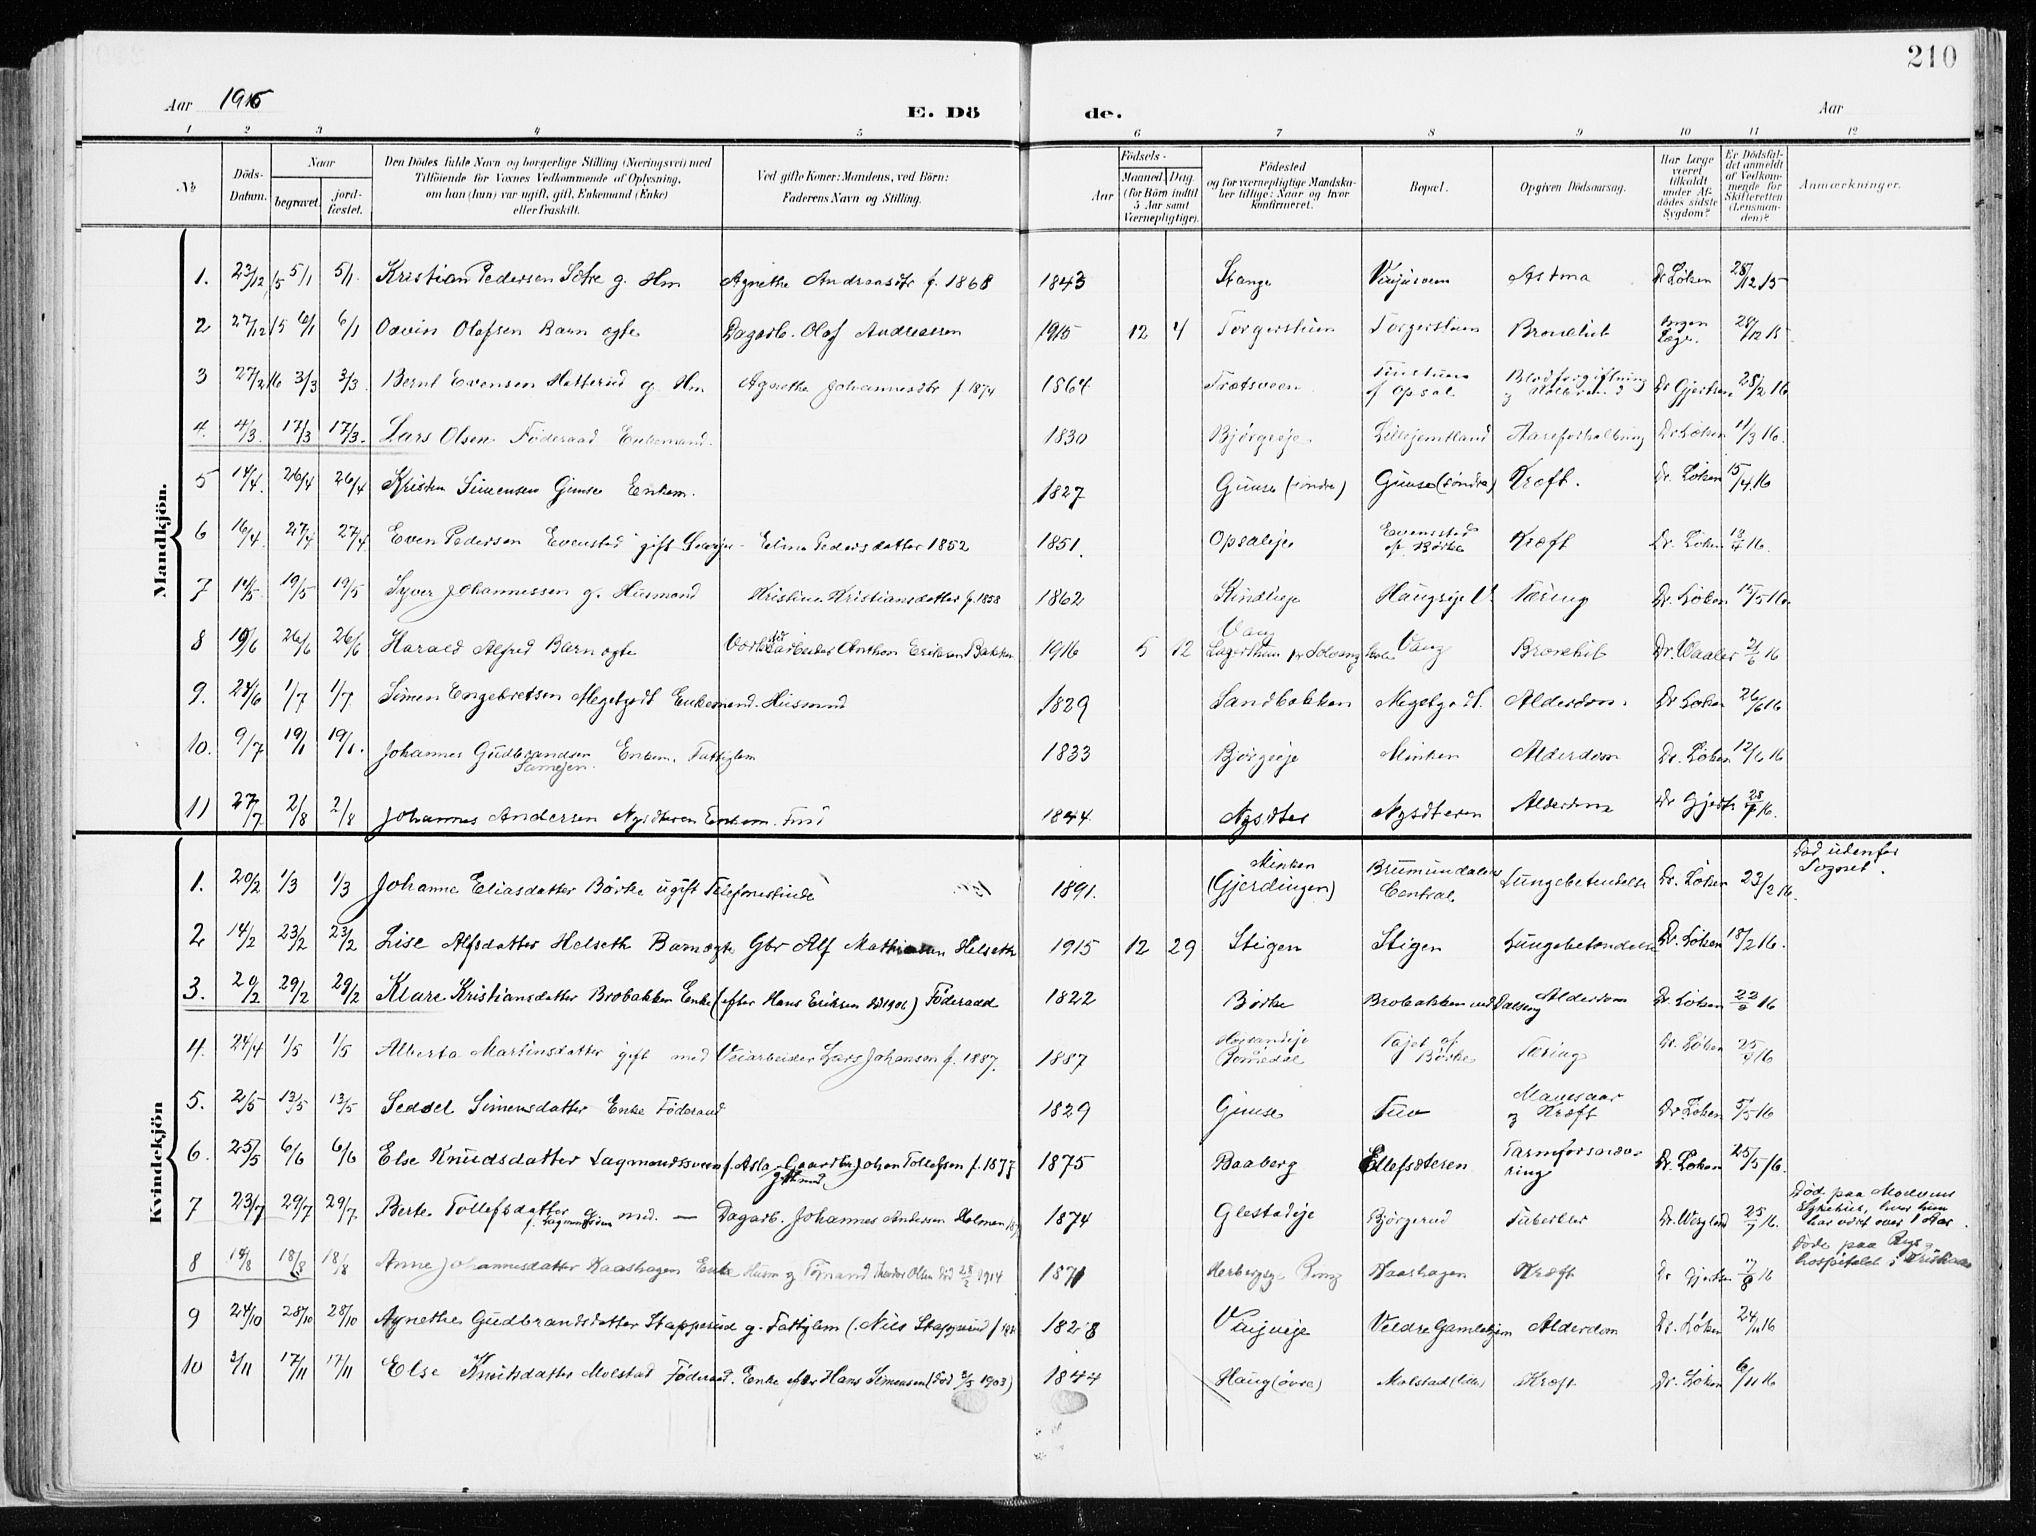 210
Aar 1916 E. Dö de. Aar
1 2 3 4 5 6 7 8 9 10 11 12
No Döds-Datum. Naar begravet. jord-fæstet. Den Dödes fulde Navn og borgerlige Stilling (Næringsvei) med Tilføiende for Voxnes Vedkommende af Oplysning, om han (hun) var ugift, gift, Enkemand (Enke) eller fraskilt. Ved gifte Koner: Mandens, ved Børn: Faderens Navn og Stilling. Födsels- Aar Maaned. Dag. (for Börn indtil 5 Aar samt Værnepligtige). Födested og for værnepligtige Mandska-ber tillige: Naar og hvor konfirmeret. Bopæl. Opgiven Dödsaarsag. Har Læge været tilkaldt under Af-dödes sidste Sygdom? Er Dödsfal-det anmeldt af Vedkom-mende for Skifteretten (Lensman-den)? Anmærkninger.
Mandkjön.
1. 23/12 15 5/1 5/1 Kristian Pedersen Sætre g. Hm Agnethe Andreasdtr f. 1868 1843 Stange Astma Dr Løken 28/12 15
2 27/12 15 6/1 6/1 Odvin Olafsen Barn ægte Dagarb. Olaf Andreassen 1915 12 4 Torgerstuen Torgerstuen Bronchit Ingen Læge. 28/12 15
3 27/2 16 3/3 3/3 Bernt Evensen Hatterud g. Hm Agnethe Johannesdtr f 1874 1864 Trætsveen af Opsal Blodforgiftning og Dr Gjertsen 28/2 16
4. 4/3 17/3 17/3 Lars Olsen Føderaad Enkemand. 1830 Bjørgeeje Lillejemtland Aareforkalkning Dr Løken 11/3 16.
5 14/4 26/4 26/4 Kristen Simensen Gimse Enkem. 1827 Gimse (søndre) Gimse (søndre) Kræft. Dr. Løken 15/4 16
6 16/4 27/4 27/4 Even Pedersen Evenstad gift Elina Pedersdatter 1852 1851. Opsaleje Evensstad af Børke Kræft Dr. Løken 16.
7 14/5 19/5 19/5 Syver Johannessen g. Husmand Kristine Kristiansdatter f. 1858 1862 Haugseje Tæring Dr. Løken 15/5 16.
8 19/6 26/6 26/6 Harald Alfred Barn ægte arbeider Anthon Eriksen Bakken 1916 5 12 Vang Solvang Skole Vang Bronchit Dr. Waaler 2/6 16
9. 24/6 1/7 1/7 Simen Engebretsen Megetgodt Enkemand. Husmand 1829 Sandbakken Megetgodt. Alderdom. Dr Løken 26/6 16
10. 9/7 19/1 19/1. Johannes Gudbrandsen Enkem. Fattiglem 1833 Bjørgeeje Minken Alderdom Dr. Løken 12/6 16
11 27/7 2/8 2/8 Johannes Andersen Nysæteren Enkem. 1844 Nysæter Nysæteren Alderdom Dr Gjerts 28/7 16.
Kvindekjön
1. 20/2 1/3 1/3 Johanne Eliasdatter Børke ugift Telefonistinde 1891. Minken (Gjerdingen) Brumundalens Central Lungebetendelse Dr. Løken 23/2 16. Død udenfor Sognet.
2 14/2 23/2 23/2 Lise Alfsdatter Helseth Barn ægte Gbr Alf Mathiasen Helseth 1915 12 29 Stigen Stigen Lungebetendelse Dr. Løken 18/2 16.
3. 20/2 29/2 29/2 Klare Kristiansdatter Brobakken Enke (efter Hans Eriksen død 1906) Føderaad 1822 Børke Brobakken ved Dalseng Alderdom Dr. Løken 22/2 16
4. 24/4 1/5 1/5 Alberta Martinsdatter gift med Veiarbeider Lars Johansen f. 1887. 1887 Romedal Tajet af Børke Tæring Dr. Løken 25/4 16
5. 2/5 13/5 13/5 Seddel Simensdatter Enke Føderaad 1829 Gimse Tuv Mavesaar og Kræft Dr Løken 5/5 16
6. 25/5 6/6 6/6 Else Knudsdatter Lagmandssveen f. Asla gift med Gaardbr Johan Tollefsen f. 1877 1875 Faaberg Ellefsæteren Tarmforsnæv-ring Dr. Løken 25/5 16.
7 23/7 29/7 29/7 Berte Tollefsdatter g. med. — Dagarb. Johannes Andersen Holmen 1874 Glestadeje Bjørgerud Tuberkler Dr. Wergland 25/7 16. Død paa Sykehus, hvor hun har været over 1 Aar.
8 14/8 18/8 18/8 Anne Johannesdatter Kaashagen Enke Husm og Tømand Olsen død 28/2 1914 1871 Kaashagen Kræft Dr Gjertsen 17/8 16 Døde paa Rigs-hospitalet i Kristiania
9 24/10 28/10 28/10 Agnethe Gudbrandsdatter Stapperud g. Fattiglem (Nils Stapperud f 1828 Vinjveje Veldre Gamlehjem Alderdom Dr. Løken 24/11 16
10 3/11 17/11 17/11 Else Knutsdatter Molstad Føderaad. Enke efter Hans Simensen (død 3/5 1903) 1844 Haug (øvre) Molstad (lille) Kræft Dr. Løken 6/11 16